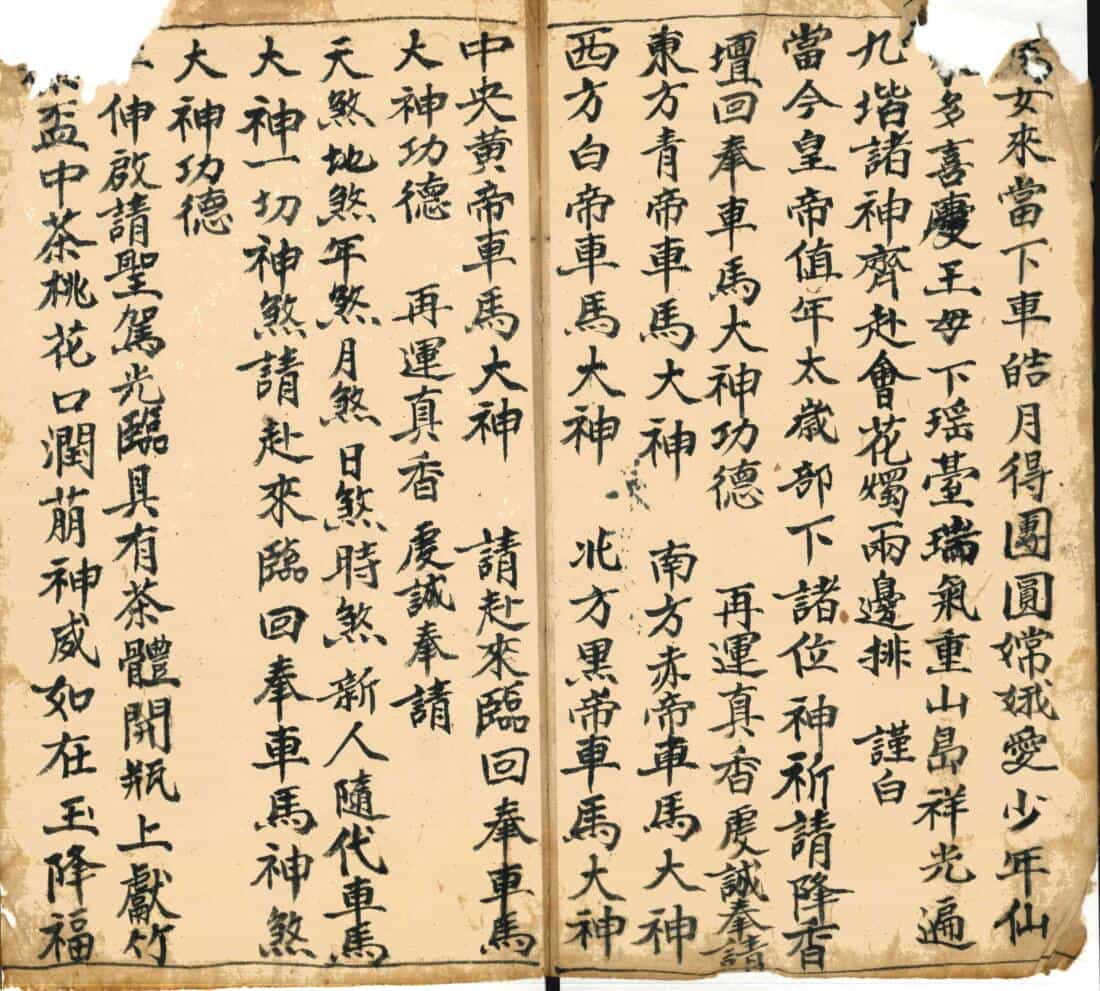 女來當下車皓月得團圓嫦娥愛少年仙
多喜慶王母下瑶臺瑞氣重山島祥光遍
九堦諸神齊赴會花燭兩邊排 謹白
當今皇帝值年太歲部下諸位神祈請降香
壇回奉車馬大神功德 再運真香虔誠奉請
東方青帝車馬大神 南方赤帝車馬大神
西方白帝車馬大神 北方黑帝車馬大神
中央黃帝車馬大神 請赴來臨回奉車馬
大神功德 再運真香虔誠奉請
天煞地煞年煞月煞日煞時煞新人隨代車馬
大神一切神煞請赴來臨回奉車馬神煞
大神功德
伸啟請聖駕光臨具有茶體開瓶上獻竹
盃中茶桃花口潤萠神威如在玉降福